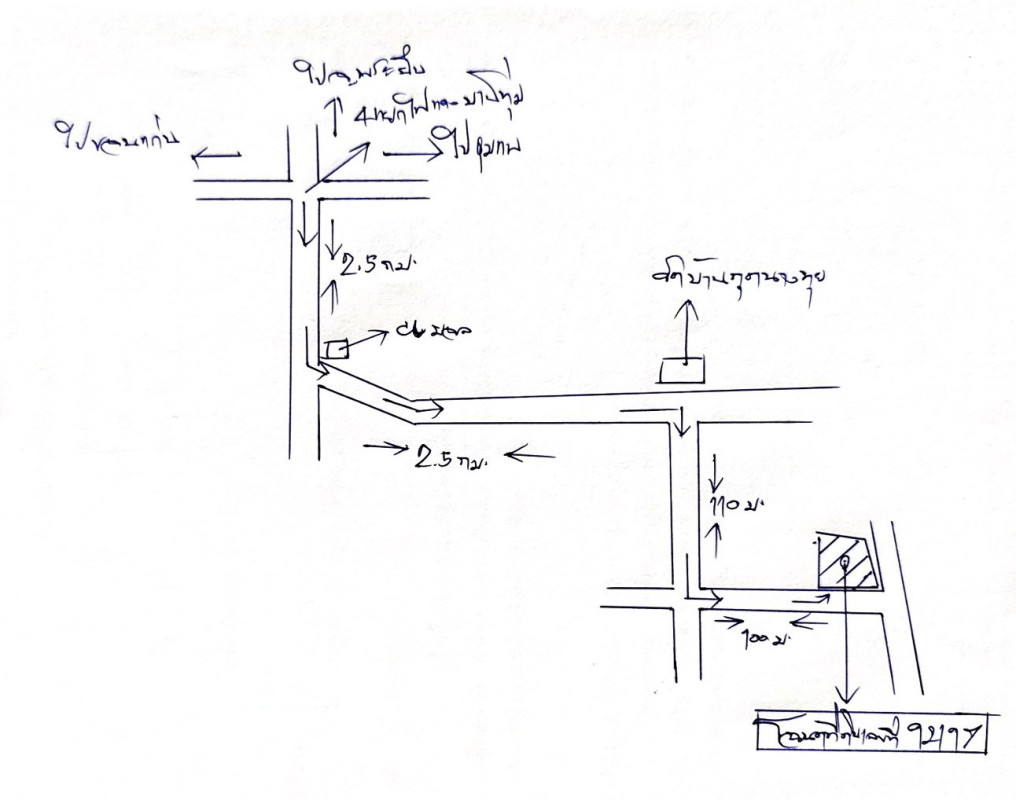 ไปอ.พระยืน
4แยกไฟแดง บ้านทุ่ม
ไปขอนแก่น
ไปชุมแพ
2.5 กม.
วัดบ้านกุดนางทุย
2.5 กม.
110 ม.
100 ม.
โฉนดที่ดินเลขที่